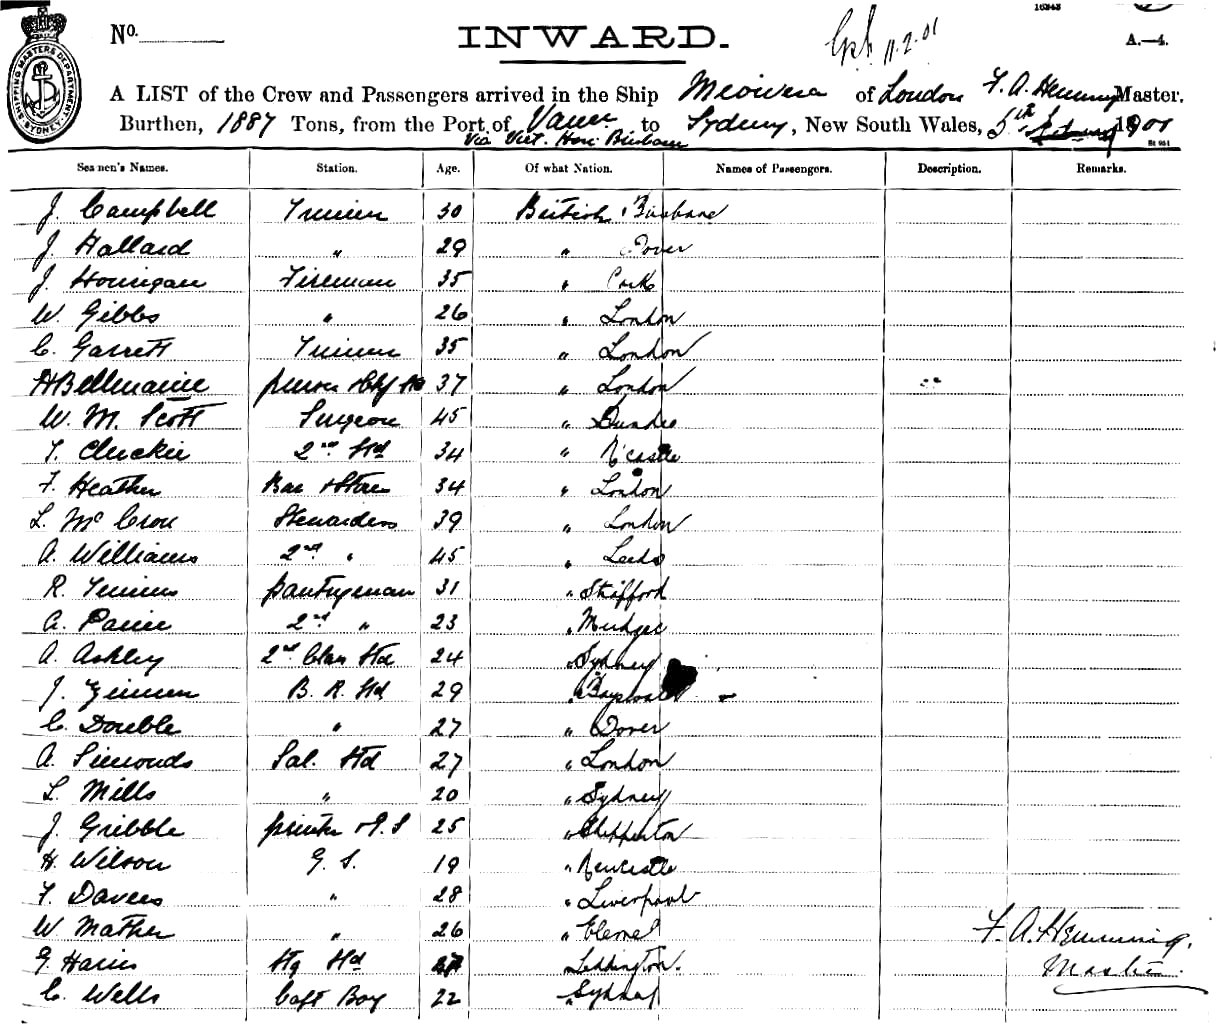 16343
SHIPPING MASTERS DEPARTMENT. SYDNEY.
No.
INWARD.
11.2.01
A.—4.
A LIST of the Crew and Passengers arrived in the Ship Miowera of London F. A. Hemming Master.
Burthen, 1887 Tons, from the Port of Vancr to Sydney, New South Wales, 5th 1901
Via Vict. Hon: Brisbane
St 951
Seamen's Names. Station. Age. Of what Nation. Names of Passengers. Description. Remarks.
J. Campbell Trimmer 30 British Brisbane
J. Hallard " 29 " Dover
J. Hourigan Fireman 35 " Cork
W. Gibbs " 26 " London
C. Garrett Trimmer 35 " London
H Bellmaine purser & Chf Std 37 " London
W. M. Scott Surgeon 45 " Dundee
T. Cluckie 2nd Std 34 " N'castle
F. Heather Bar & Store 34 " London
L. McCrou Stewardess 39 " London
A. Williams 2nd " 45 " Leeds
R. pantryman 31 " Stafford
A. 2nd " 23 " Mudgee
A. Ashley 2nd Class Std 24 " Sydney
J. B. R. Std 29 " Bayswater
C. Double " 27 " Dover
A. Simonds Sal. Std 27 " London
L. Mills " 20 " Sydney
J. Gribble printer & P. S 25 " Shepperton
H. Wilson G. S. 19 " Newcastle
F. Davies " 28 " Liverpool
W. Mather " 26 "
G. Harris Stg Std Leddington.
C. Wells Capt Boy 22 " Sydney
F. A. Hemming.
Master.